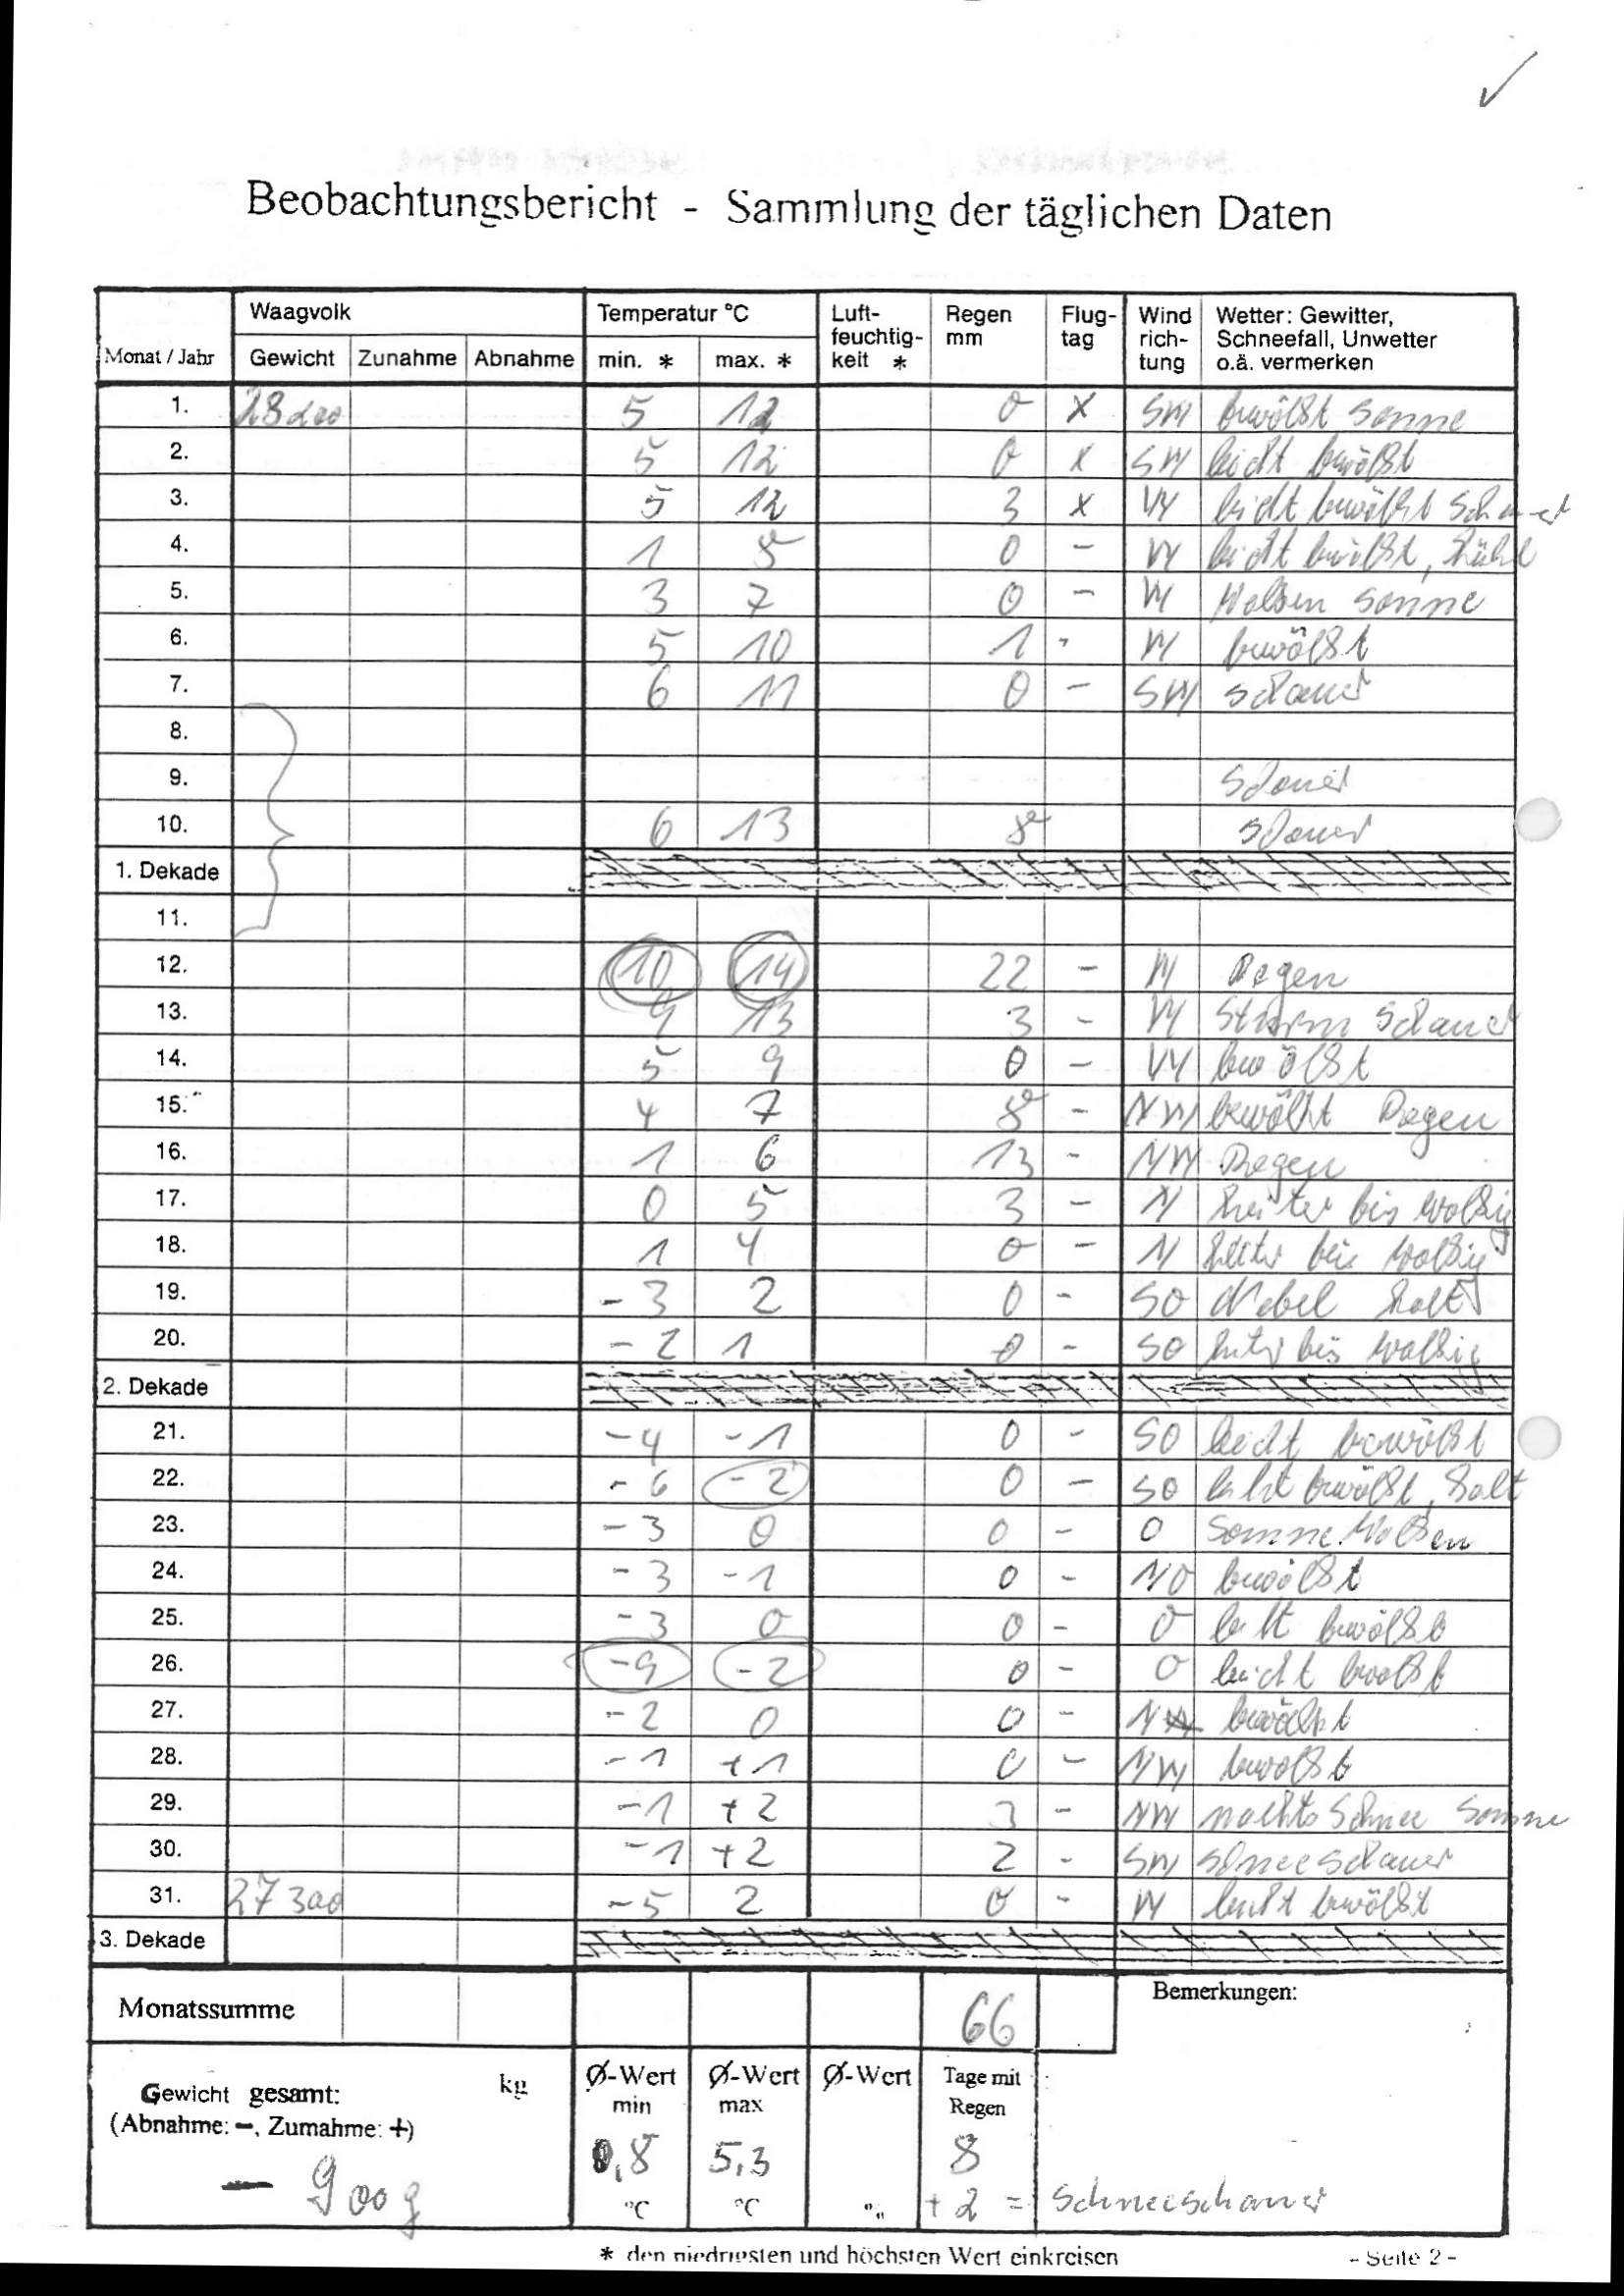 Beobachtungsbericht - Sammlung der täglichen Daten
Monat / Jahr Waagvolk Temperatur °C Luft-feuchtig-keit * Regen mm Flug-tag Wind rich-tung Wetter: Gewitter, Schneefall, Unwetter o.ä. vermerken
Gewicht Zunahme Abnahme min. * max. *
1. 28200 5 12 0 X SW bewölkt Sonne
2. 5 12 0 x SW leicht bewölkt
3. 5 12 3 x W leicht bewölkt Schauer
4. 1 8 0 - W leicht bewölkt, kühl
5. 3 7 0 - W Wolken Sonne
6. 5 10 1 - W bewölkt
7. 6 11 0 - SW Schauer
8.
9. Schauer
10. 6 13 8 Schauer
1. Dekade
11.
12. 10 14 22 - W Regen
13. 9 13 3 - W Sturm Schauer
14. 5 9 0 - W bewölkt
15. 4 7 8 - NW bewölkt Regen
16. 1 6 13 - NW Regen
17. 0 5 3 - N heiter bis wolkig
18. 1 4 0 - N heiter bis wolkig
19. -3 2 0 - SO Nebel kalt
20. -2 1 0 - SO heiter bis wolkig
2. Dekade
21. -4 -1 0 - SO leicht bewölkt
22. -6 -2 0 - SO leicht bewölkt, kalt
23. -3 0 0 - O Sonne Wolken
24. -3 -1 0 - NO bewölkt
25. -3 0 0 - O leicht bewölkt
26. -9 -2 0 - O leicht bewölkt
27. -2 0 0 - bewölkt
28. -1 +1 0 - NW bewölkt
29. -1 +2 3 - NW nachts Schnee Sonne
30. -1 +2 2 - SW Schneeschauer
31. 27300 -5 2 0 - W leicht bewölkt
3. Dekade
Monatssumme 66 Bemerkungen:
Gewicht gesamt: kg Ø-Wert min Ø-Wert max Ø-Wert Tage mit Regen
(Abnahme: -, Zumahme: +)
0,8 5,3 8
- 900 g °C °C + 2 = Schneeschauer
* den niedrigsten und höchsten Wert einkreisen - Seite 2 -